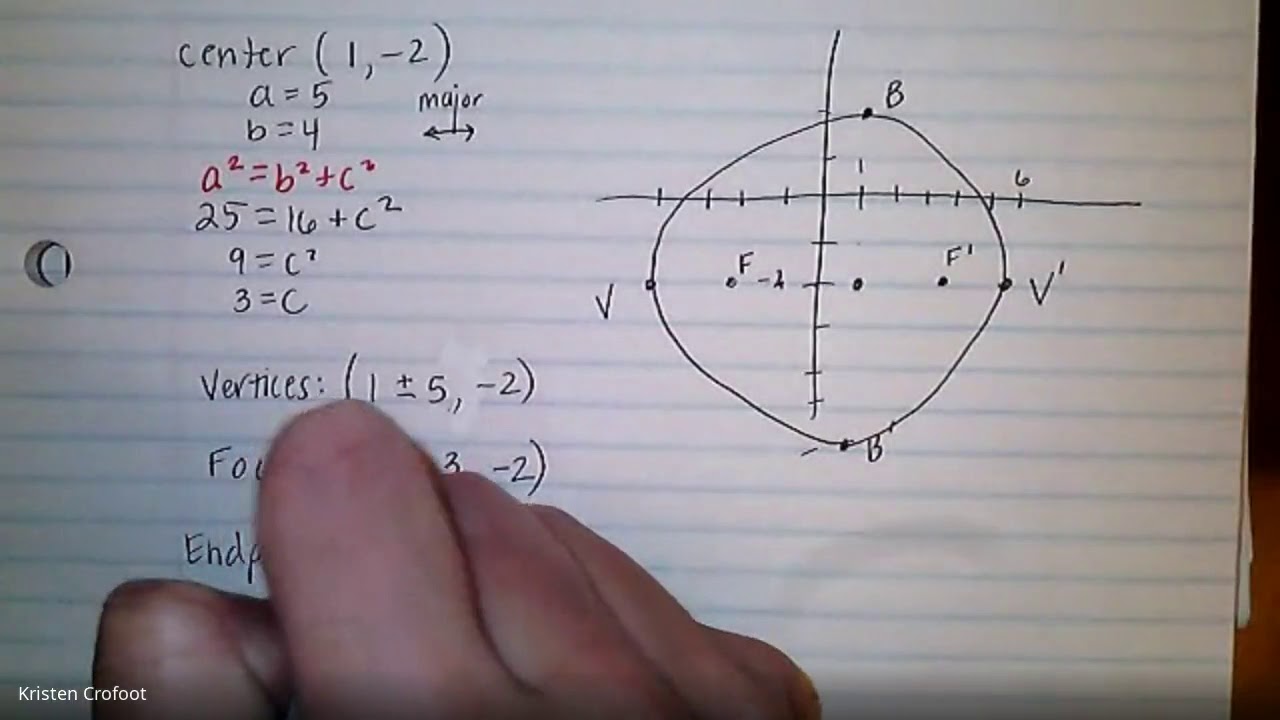 center (1, -2)
a = 5
b = 4
major
a² = b² + c²
25 = 16 + c²
9 = c²
3 = c
Vertices: (1 ± 5, -2)
3, -2)
B
1
6
F
-2
F'
V
V'
B
Kristen Crofoot